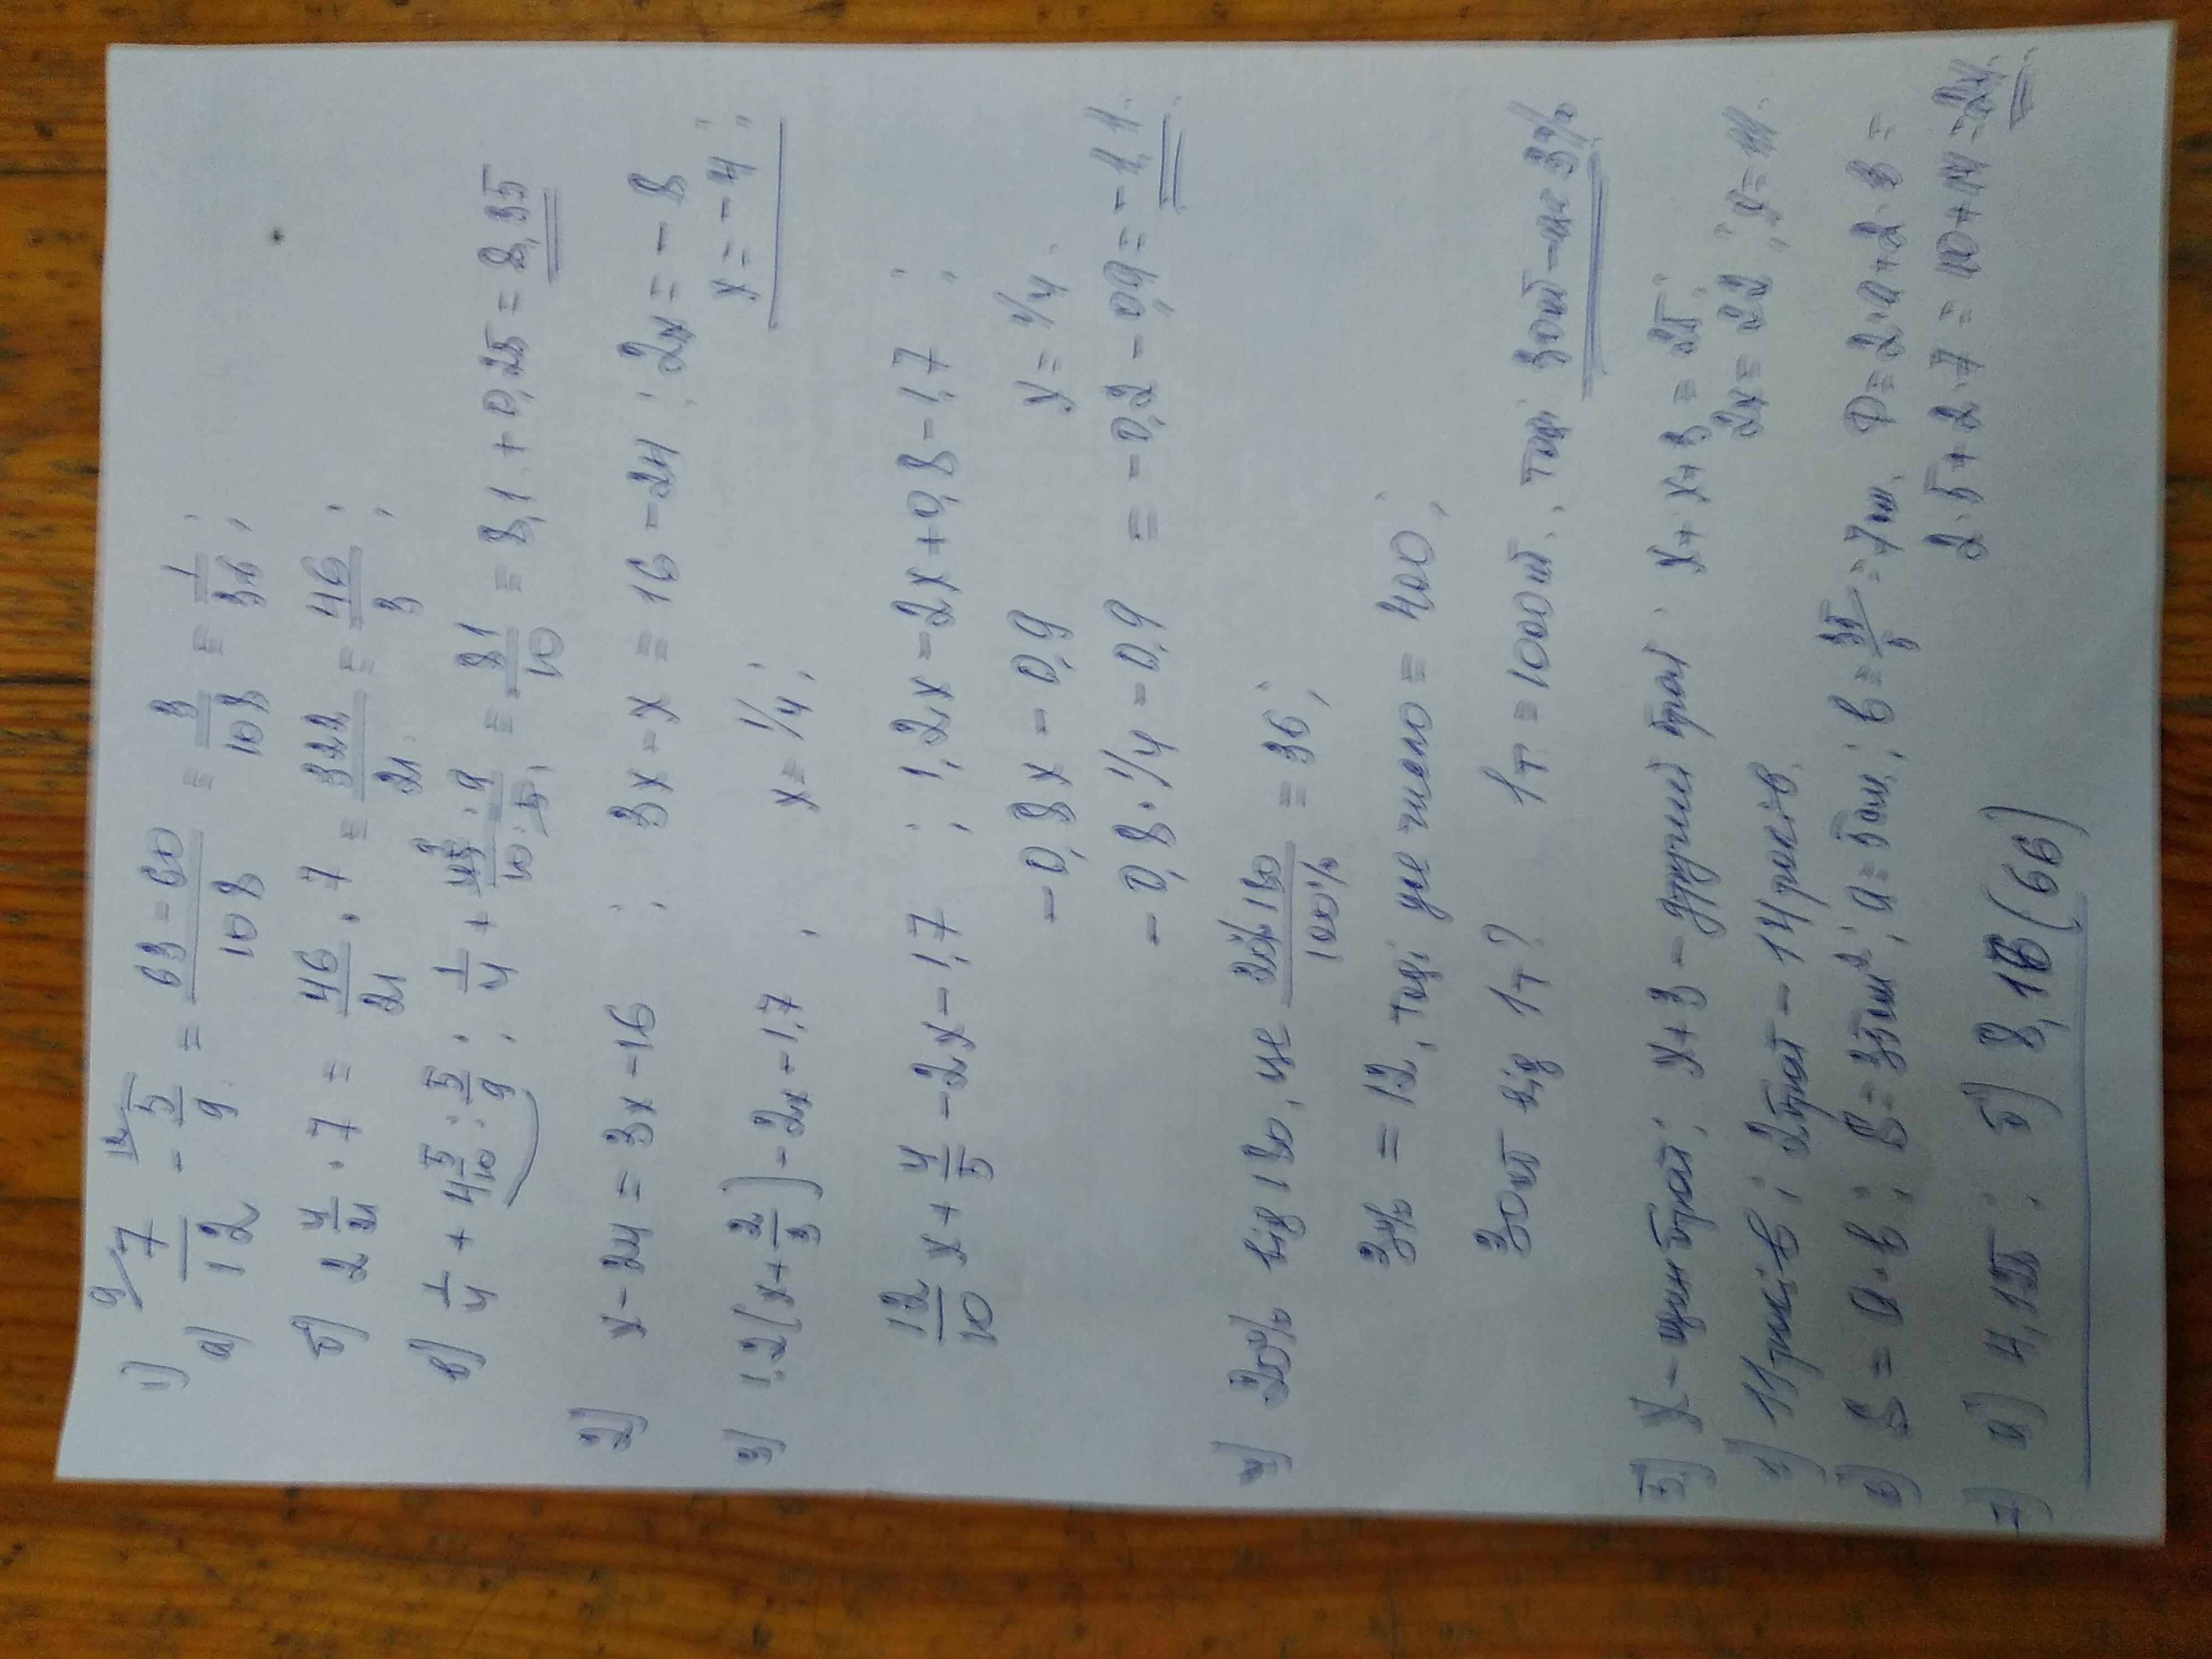 1)
а) 9/ 7/12 - 12/ 5/9 = (63-60)/108 = 3/108 = 1/36 ;
б) 2 4/21 · 7 = 46/21 · 7 = 322/21 = 46/3 ;
в) 1/4 + 4 5/10 : 5/9 ; 1/4 + 45·9/10·5 = 81/10 = 8,1 + 0,25 = 8,35
2) x-24 = 3x-16 ; 3x-x = 16-24 ; 2x = -8
x = -4 ;
3) 1,2(x+2/3)-2x-1,7 , x = 1/4 ;
12/10 x + 4/5 -2x-1,7 ; 1,2x-2x+0,8-1,7 ;
-0,8x-0,9 y = 1/4.
-0,8·1/4-0,9 = -0,2-0,9 = -1,1.
4) 20% від 180, це 20%·180/100% = 36 ;
3% = 12, тоді усе число = 400 ;
30кг від 1т? 1т = 1000кг, тоді 30кг - це 3%
5) x - один брат; x+3 - другий брат. x+x+3 = 25 ;
2x = 22 ; x = 11.
1) 11 років ; 2 брат - 14 років.
6) S = a·b ; S = 35см² ; a = 5см ; b = 35/5 = 7см. P = 2·a+2·b =
2·5+2·7 = 10+14 = 24.
7) а) 4,125 ; б) 8,16(66)